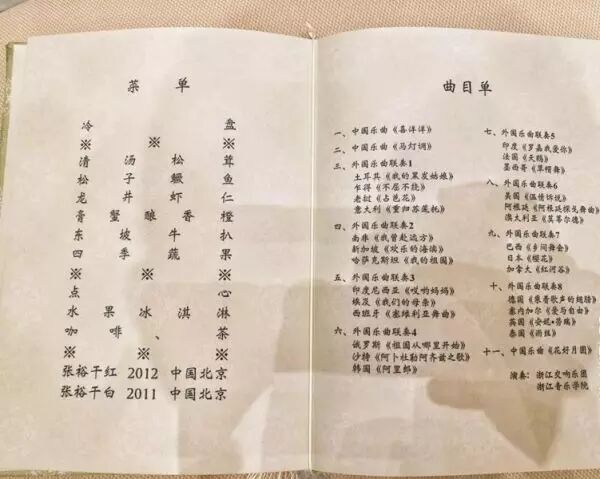 菜单
冷盘
※※※
清汤松茸
松子鳜鱼
龙井虾仁
膏蟹酿香橙
东坡牛扒
四季蔬果
※※※
点心
水果冰淇淋
咖啡、茶
※※※
张裕干红 2012 中国北京
张裕干白 2011 中国北京
曲目单
一、中国乐曲《喜洋洋》
二、中国乐曲《马灯调》
三、外国乐曲联奏1
土耳其《我的黑发姑娘》
乍得《不屈不挠》
老挝《占芭花》
意大利《重归苏莲托》
四、外国乐曲联奏2
南非《我曾赴远方》
新加坡《欢乐的海滨》
哈萨克斯坦《我的祖国》
五、外国乐曲联奏3
印度尼西亚《哎哟妈妈》
埃及《我们的母亲》
西班牙《塞维利亚舞曲》
六、外国乐曲联奏4
俄罗斯《祖国从哪里开始》
沙特《阿卜杜勒阿齐兹之歌》
韩国《阿里郎》
七、外国乐曲联奏5
印度《罗嘉我爱你》
法国《天鹅》
墨西哥《草帽舞》
八、外国乐曲联奏6
美国《温情诉说》
阿根廷《阿根廷探戈舞曲》
澳大利亚《莫蒂尔德》
九、外国乐曲联奏7
巴西《乡间舞会》
日本《樱花》
加拿大《红河谷》
十、外国乐曲联奏8
德国《乘着歌声的翅膀》
塞内加尔《爱与自由》
英国《安妮•劳瑞》
泰国《雨丝》
十一、中国乐曲《花好月圆》
演奏：浙江交响乐团
浙江音乐学院